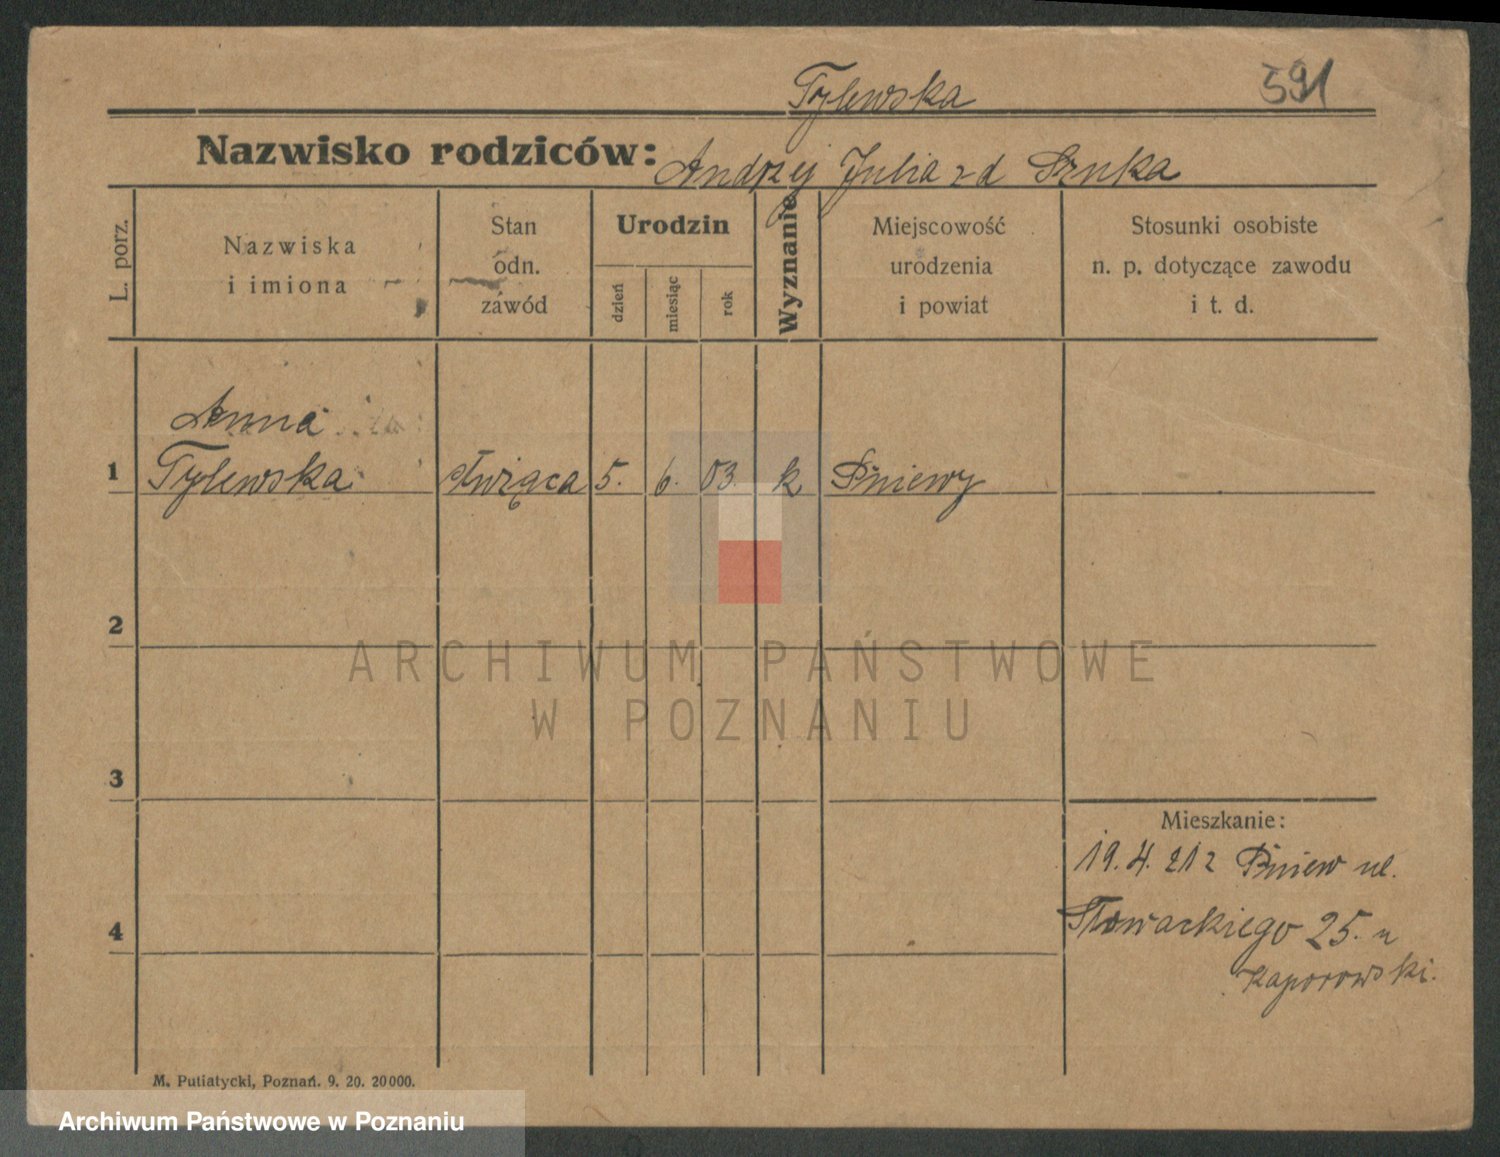 Tylewska
591
Nazwisko rodziców: Andrzej Julia zd Sznka
L. porz.
Nazwiska
i imiona
Stan
odn.
zawód
Urodzin
dzień
miesiąc
rok
Wyznanie
Miejscowość
urodzenia
i powiat
Stosunki osobiste
n. p. dotyczące zawodu
i t. d.
Anna
1 Tylewska służąca 5. 6. 03. k Pniewy
2
ARCHIWUM PAŃSTWOWE
W POZNANIU
3
Mieszkanie:
19. 4. 212 Pniew ul.
4 Słowackiego 25. u
Kaporowski.
M. Putiatycki, Poznań. 9. 20. 20000.
Archiwum Państwowe w Poznaniu